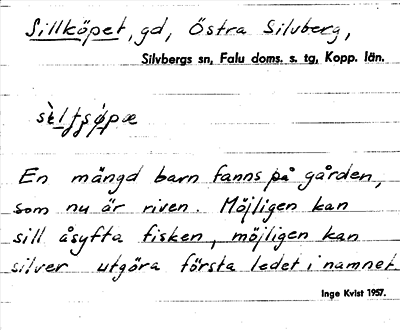 Sillköpet, gd, Östra Silvberg,
Silvbergs sn, Falu doms. s. tg, Kopp. län.
En mängd barn fanns på gården,
som nu är riven. Möjligen kan
sill åsyfta fisken, möjligen kan
silver utgöra första ledet i namnet.
Inge Kvist 1957.